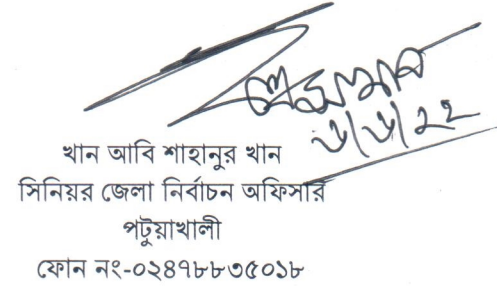 ৬/৬/২২
খান আবি শাহানুর খান
সিনিয়র জেলা নির্বাচন অফিসার
পটুয়াখালী
ফোন নং-০২৪৭৮৮৩৫০১৮